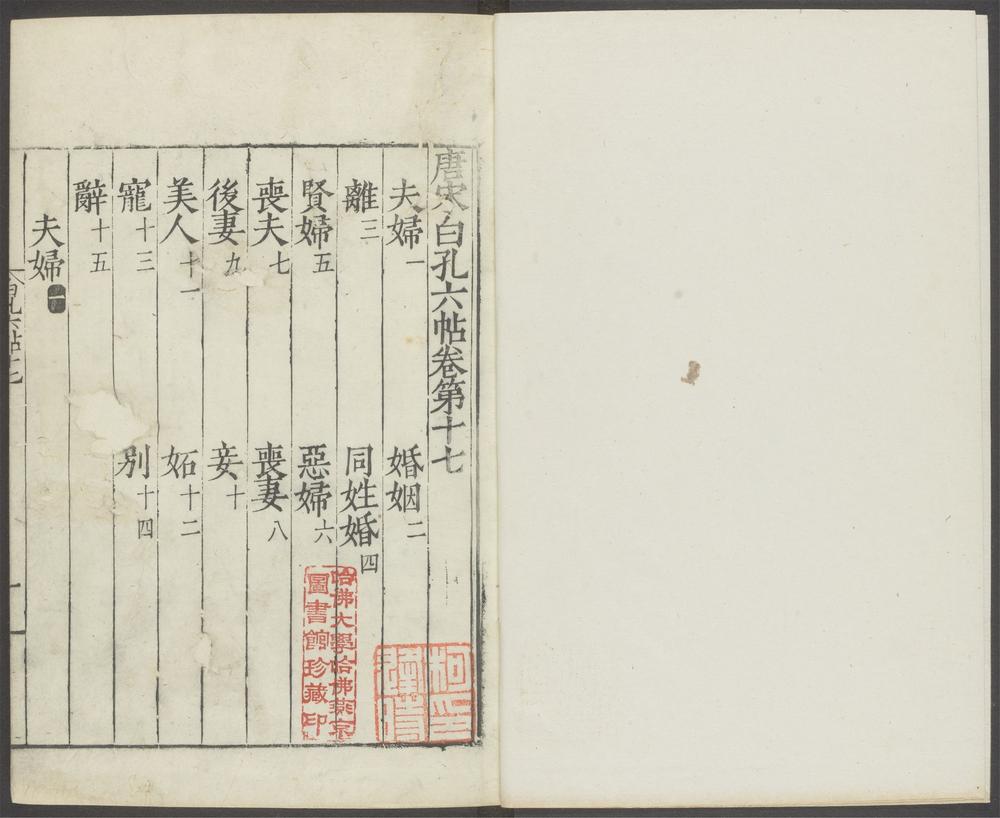 唐宋白孔六帖卷第十七
夫婦一 婚姻二
離三 同姓婚四
賢婦五 惡婦六
喪夫七 喪妻八
後妻九 妾十
美人十一 妬十二
寵十三 別十四
辭十五
夫婦一
哈佛大學哈佛燕京
圖書館珍藏印